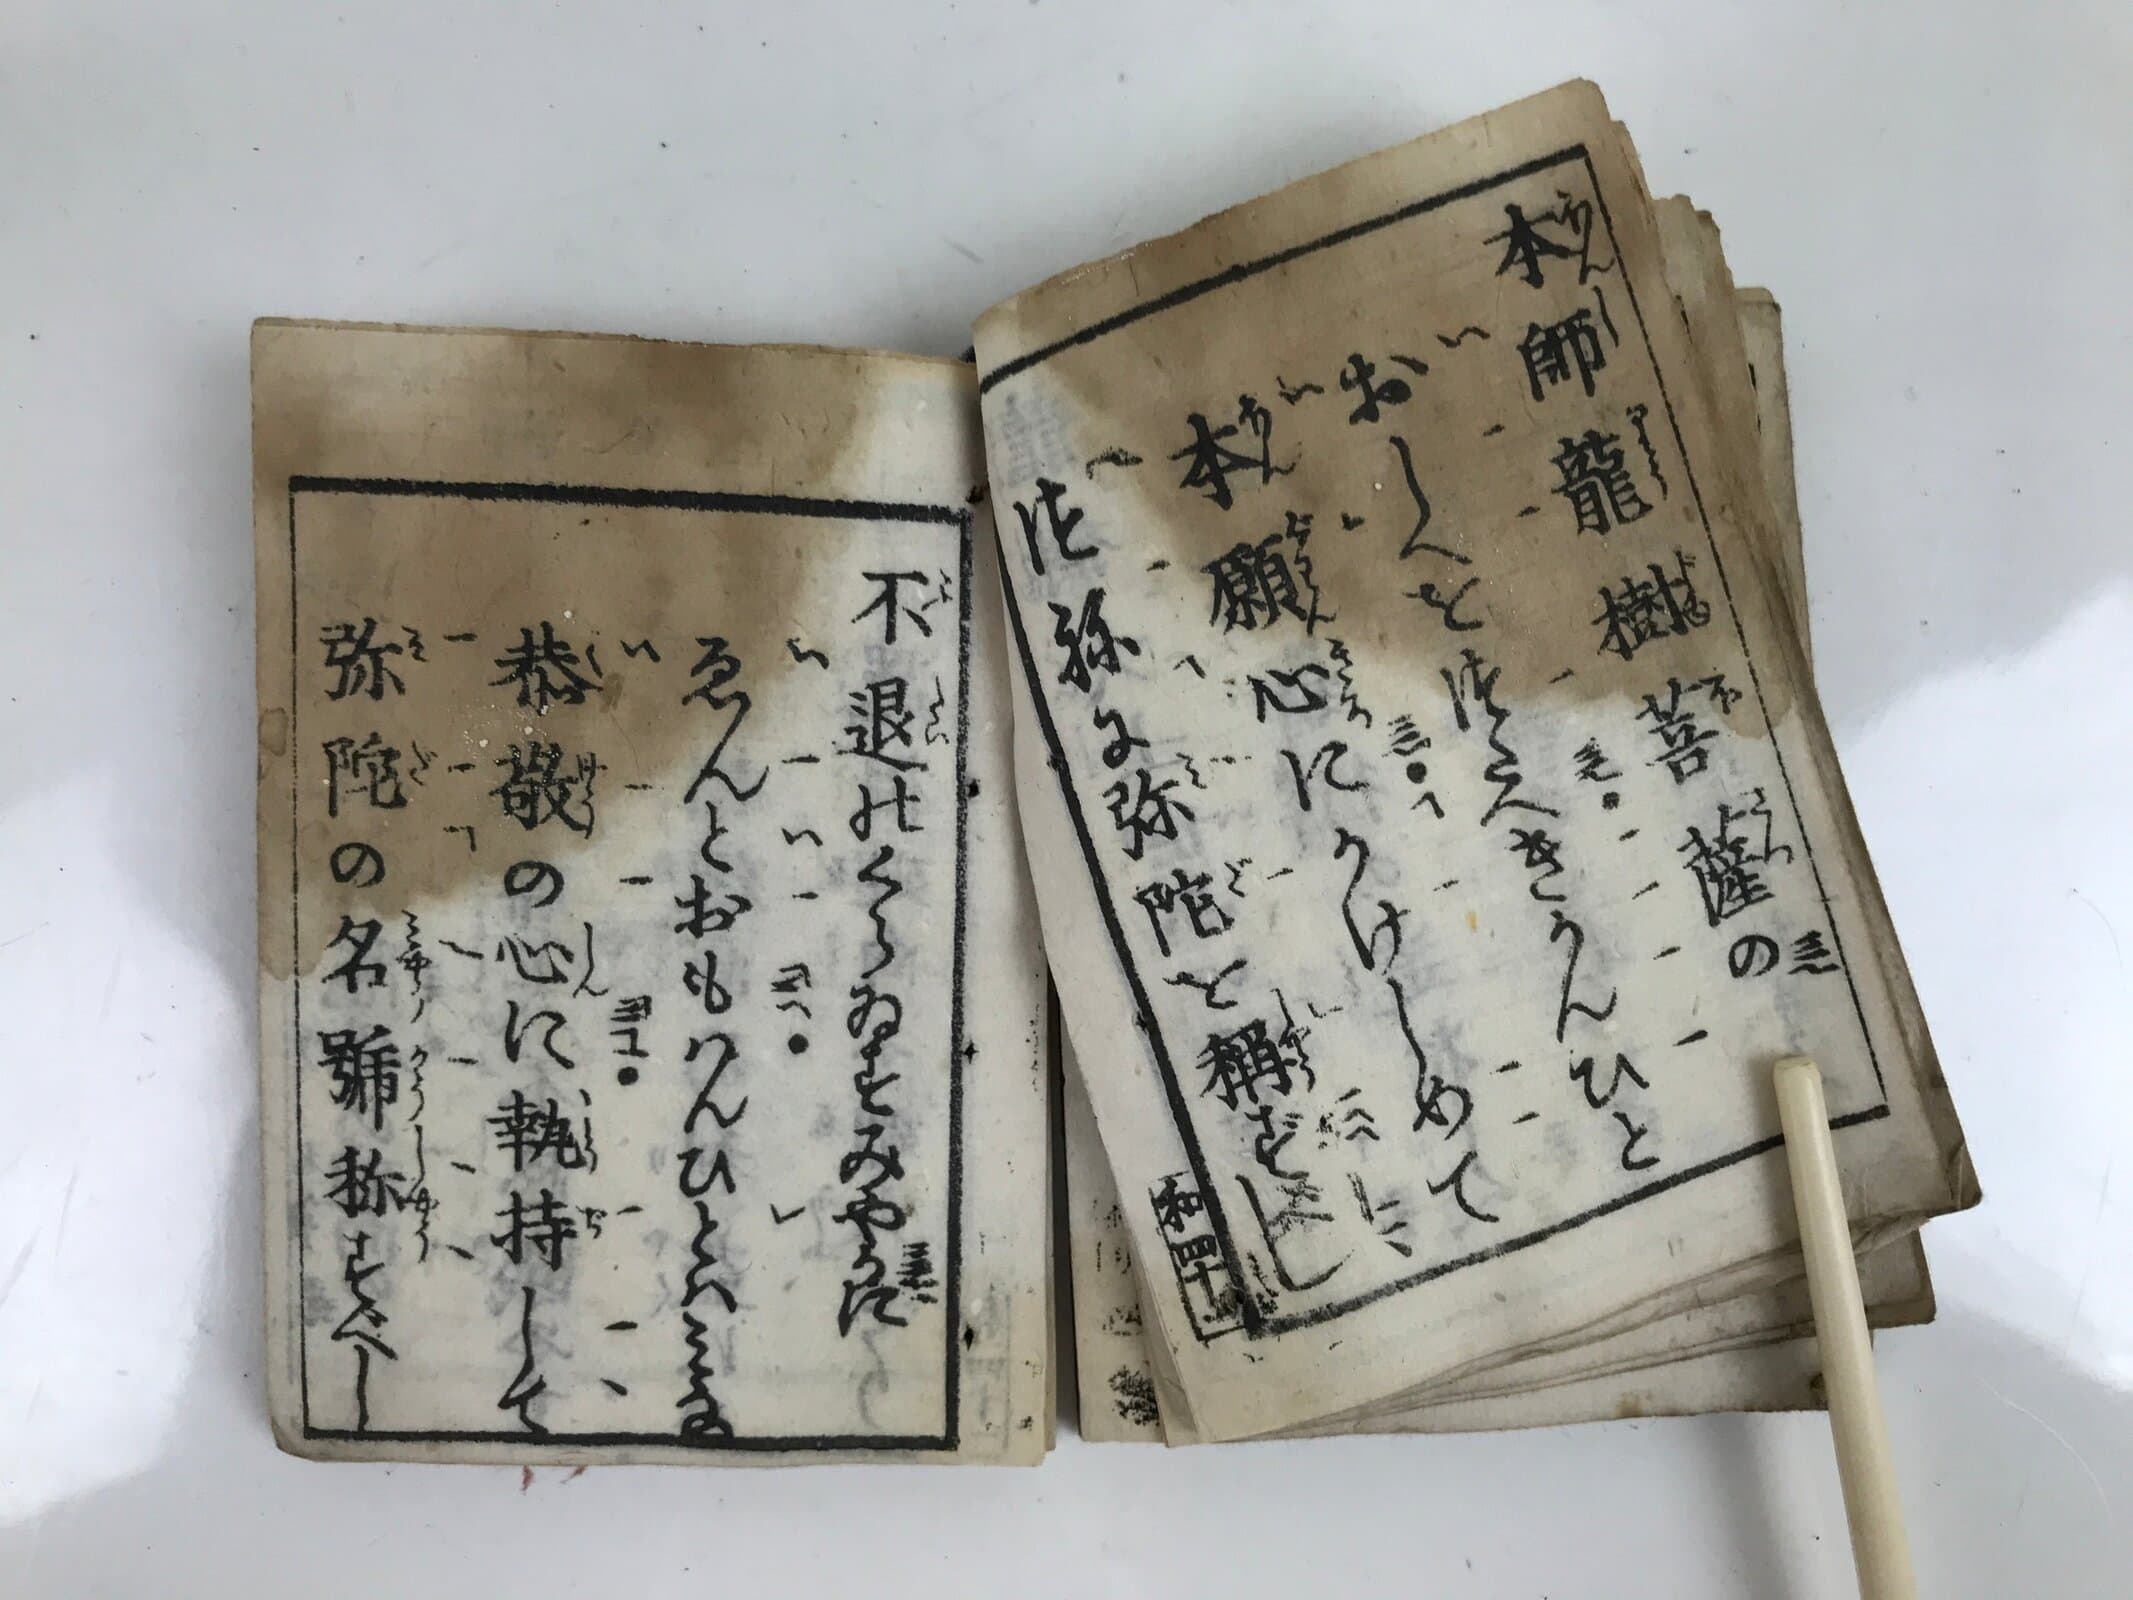 本師龍樹菩薩の
おしへをつたへきかんひと
本願心にかけしめて
つねに弥陀を稱すべし
不退のくらゐすみやかに
ゑんとおもはんひとはみな
恭敬の心に執持して
弥陀の名號称すべし